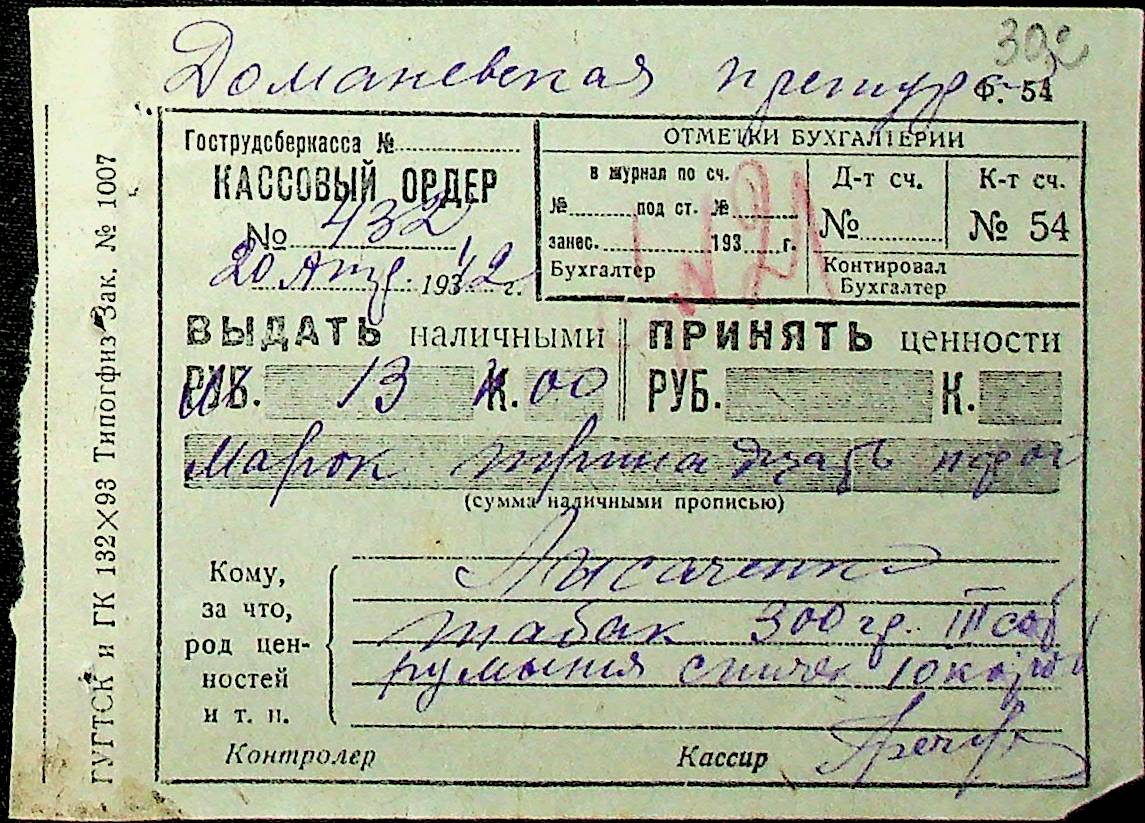 30
Доманевская претура Ф. 54
Гострудсберкасса №
КАССОВЫЙ ОРДЕР
№ 432
20 Апр. 1942 г.
ОТМЕТКИ БУХГАЛТЕРИИ
в журнал по сч.
№ под ст. №
занес. 193 г.
Бухгалтер
Д-т сч.
№
К-т сч.
№ 54
Контировал
Бухгалтер
ВЫДАТЬ наличными
РУБ. 13 К. 00
ПРИНЯТЬ ценности
РУБ. К.
Марок тринадцать
(сумма наличными прописью)
Кому,
за что,
род цен-
ностей
и т. п.
Лысаченко
табак 300 гр. III
румыния спичек 10
Контролер
Кассир
ГУГТСК и ГК 132×93 Типогфиз Зак. № 1007